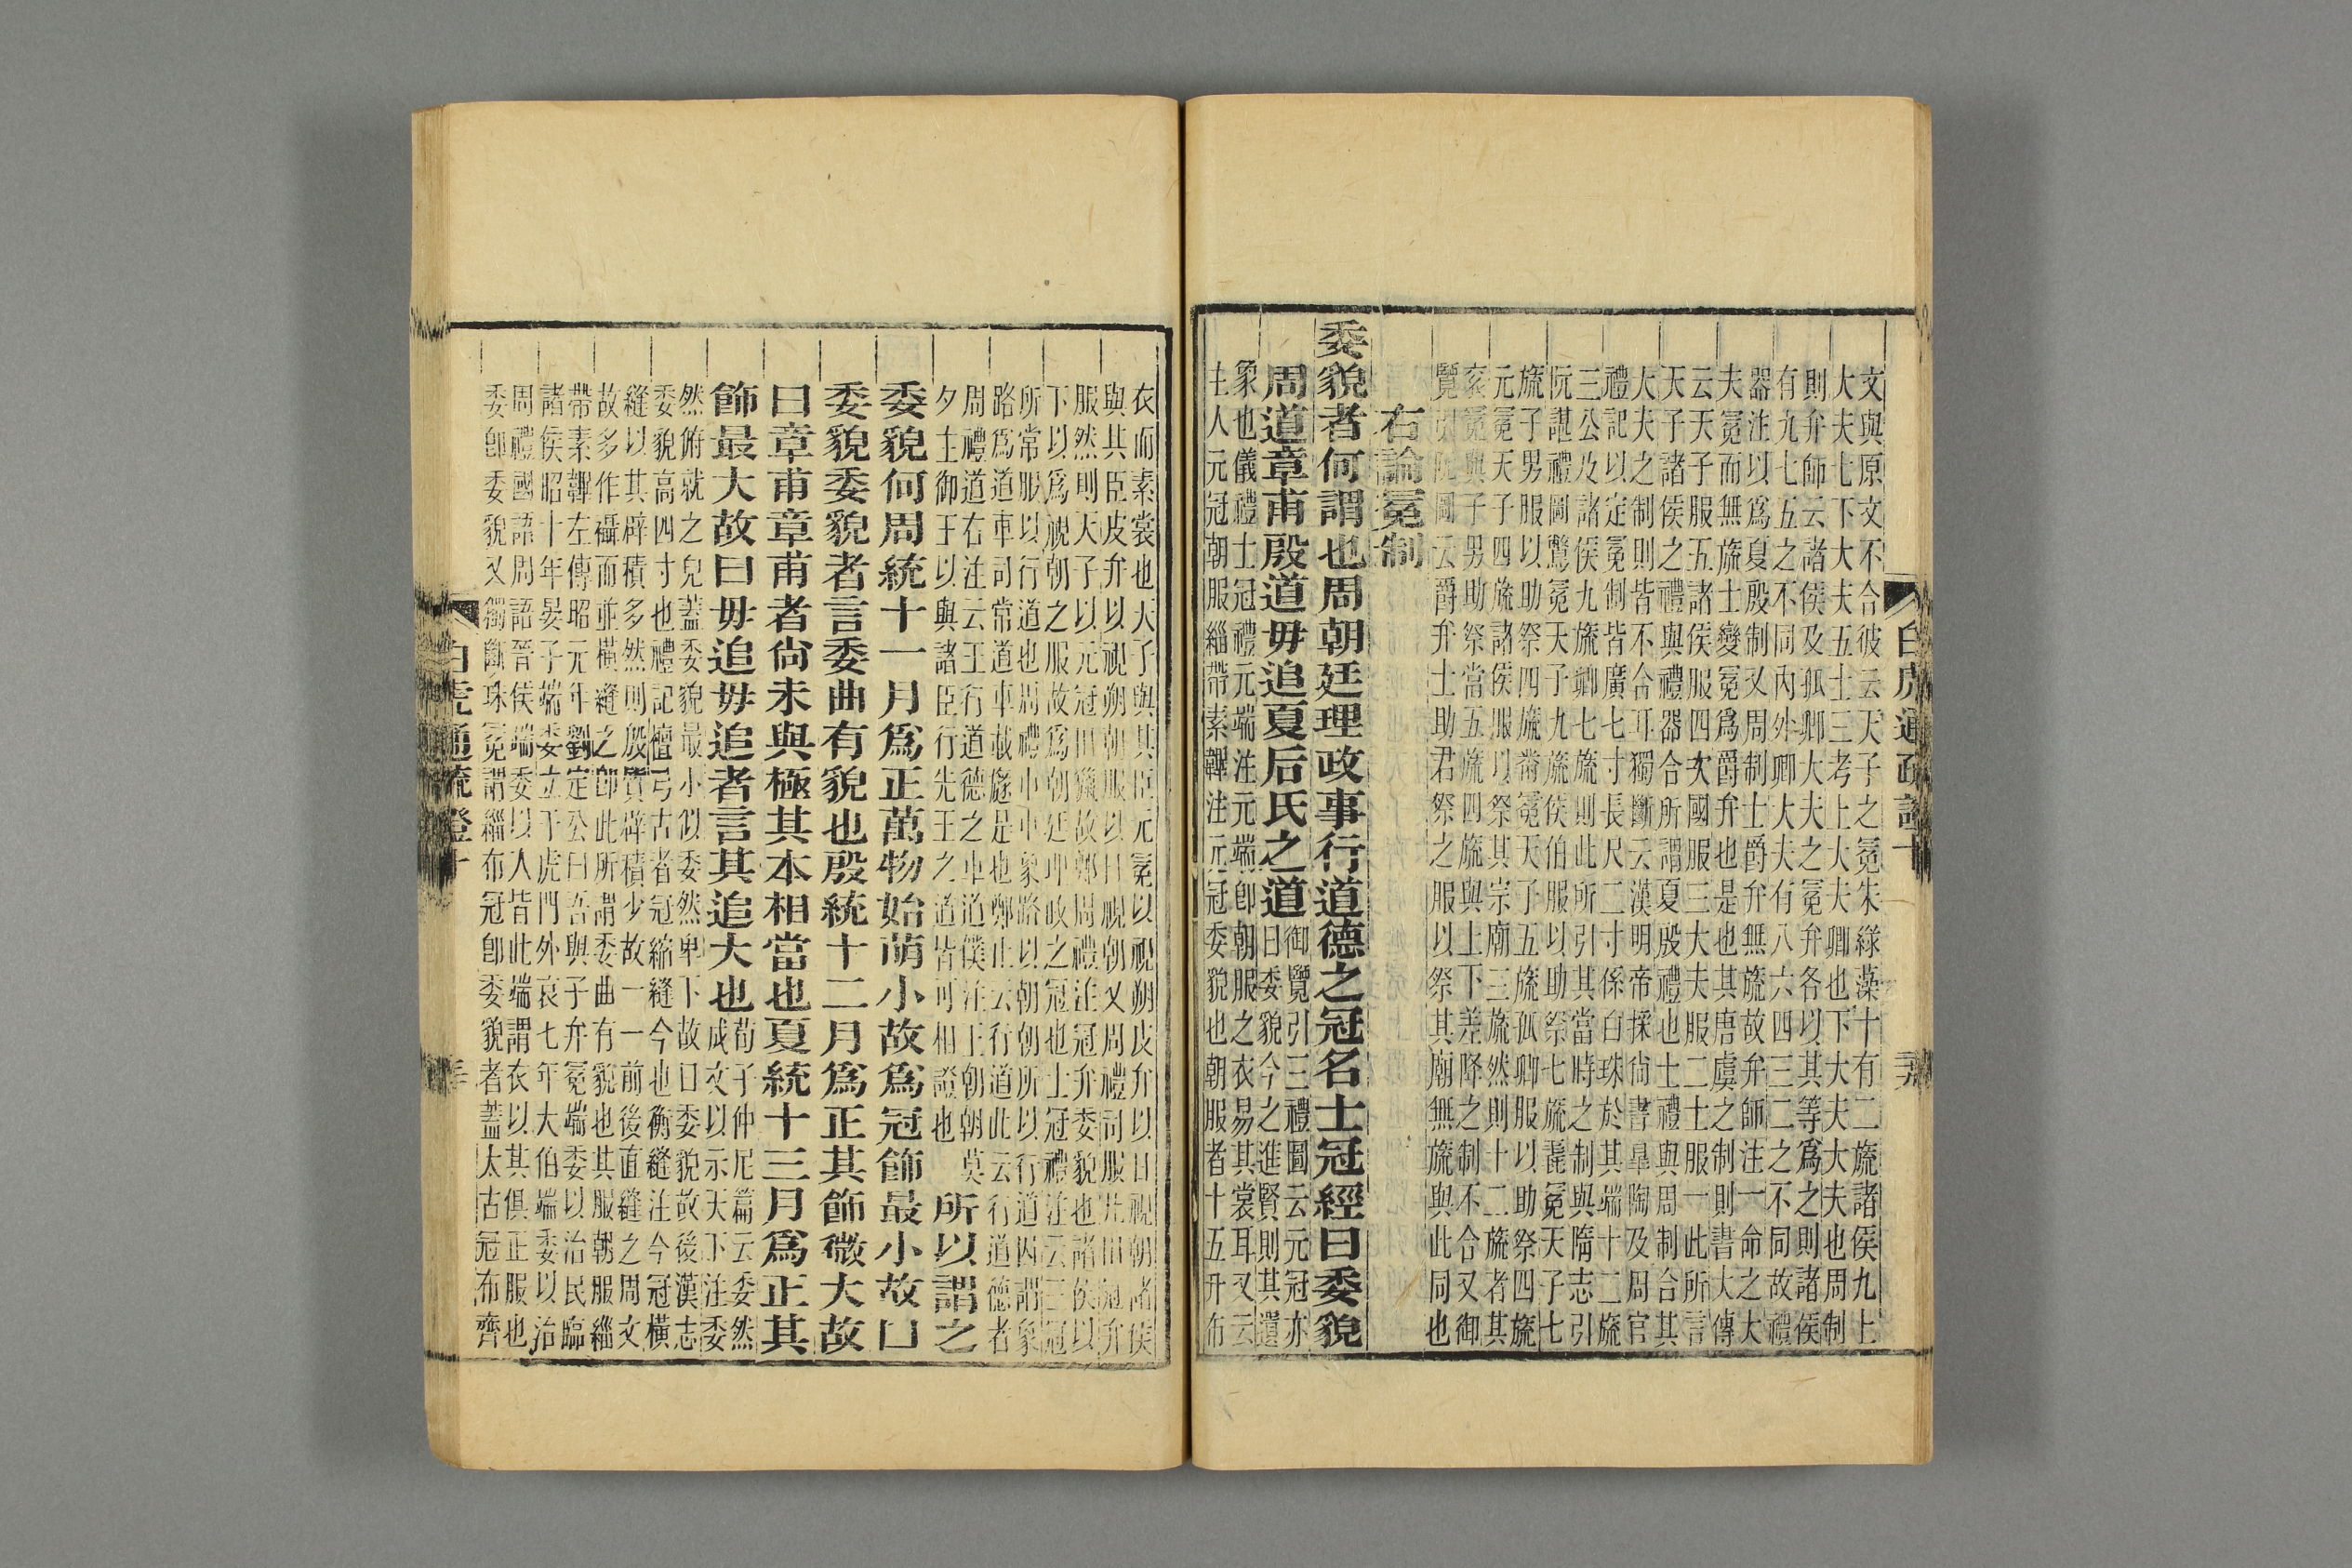 文與原文不合彼云天子之冕朱綠藻十有二旒諸侯九上
大夫七下大夫五士三考上大夫卿也下大夫大夫也周制
則弁師云諸侯及孤卿大夫之冕弁各以其等爲之則諸侯
有九七五之不同內外卿大夫有八六四三二之不同故禮
器注以爲夏殷制又周制士爵弁無旒故弁師注一命之大
夫冕而無旒士變冕爲爵弁也是也其唐虞之制則書大傳
云天子服五諸侯服四次國服三大夫服二士服一此所言
天子諸侯之禮與禮器合所謂夏殷禮也士禮與周制合其
大夫之制則皆不合耳獨斷云漢明帝採尚書臯陶及周官
禮記以定冕制皆廣七寸長尺二寸係白珠於其端十二旒
三公及諸侯九旒卿七旒則此所引其當時之制與隋志引
阮諶禮圖鷩冕天子九旒侯伯服以助祭七旒毳冕天子七
旒子男服以助祭四旒黹冕天子五旒孤卿服以助祭四旒
元冕天子四旒諸侯服以祭其宗廟三旒然則十二旒者其
衮冕與子男助祭當五旒四旒與上下差降之制不合又御
覽引阮圖云爵弁士助君祭之服以祭其廟無旒與此同也
右論冕制
委貌者何謂也周朝廷理政事行道德之冠名士冠經曰委貌
周道章甫殷道毋追夏后氏之道
御覽引三禮圖云元冠亦
曰委貌今之進賢則其遺
象也儀禮士冠禮元端注元端卽朝服之衣易其裳耳又云
主人元冠朝服緇帶素韠注元冠委貌也朝服者十五升布
衣而素裳也天子與其臣元冕以視朔皮弁以日視朝諸侯
與其臣皮弁以視朔朝服以日視朝又周禮司服凡甸冠弁
服然則天子以元冠田獵故鄭周禮注冠弁委貌也諸侯以
下以爲視朝之服故爲朝廷理政之冠也士冠禮注云三冠
所常服以行道也周禮巾車象路以朝朝所以行道因謂象
路爲道車司常道車載旞是也鄭注云行道此云行道德者
周禮道右注云王行道德之車道僕注王朝朝莫
夕主御王以與諸臣行先王之道皆可相證也
所以謂之
委貌何周統十一月爲正萬物始萌小故爲冠飾最小故曰
委貌委貌者言委曲有貌也殷統十二月爲正其飾微大故
曰章甫章甫者尚未與極其本相當也夏統十三月爲正其
飾最大故曰毋追毋追者言其追大也
荀子仲尼篇云委然
成文以示天下注委
然俯就之皃蓋委貌最小似委然卑下故曰委貌故後漢志
委貌高四寸也禮記檀弓古者冠縮縫今也衡縫注今冠橫
縫以其辟積多然則殷質辟積少故一一前後直縫之周文
故多作襵而並橫縫之卽此所謂委曲有貌也其服朝服緇
帶素韠左傳昭元年劉定公曰吾與子弁冕端委以治民臨
諸侯昭十年晏子端委立于虎門外哀七年大伯端委以治
周禮國語周語晉侯端委以入皆此端謂衣以其俱正服也
委卽委貌又獨斷珠冕謂緇布冠卽委貌者蓋太古冠布齊